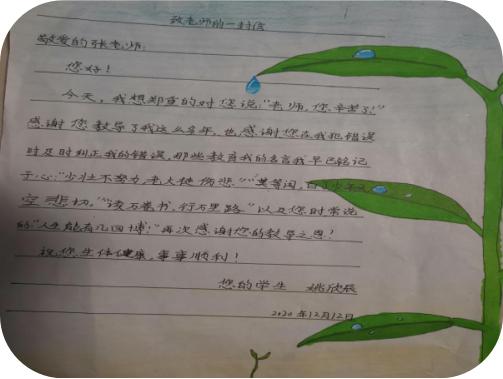 致老师的一封信
敬爱的张老师:
您好!
今天,我想郑重的对您说:“老师,您辛苦了!”
感谢您教导了我这么多年,也感谢您在我犯错误
时及时纠正我的错误,那些教育我的名言我早已铭记
于心:“少壮不努力,老大徒伤悲”“莫等闲,白了少年头
空悲切。”“读万卷书,行万里路”以及您时常说
的“人生能有几回搏!”再次感谢您的教导之恩!
祝您身体健康,事事顺利!
您的学生 姚欣辰
2020年12月12日